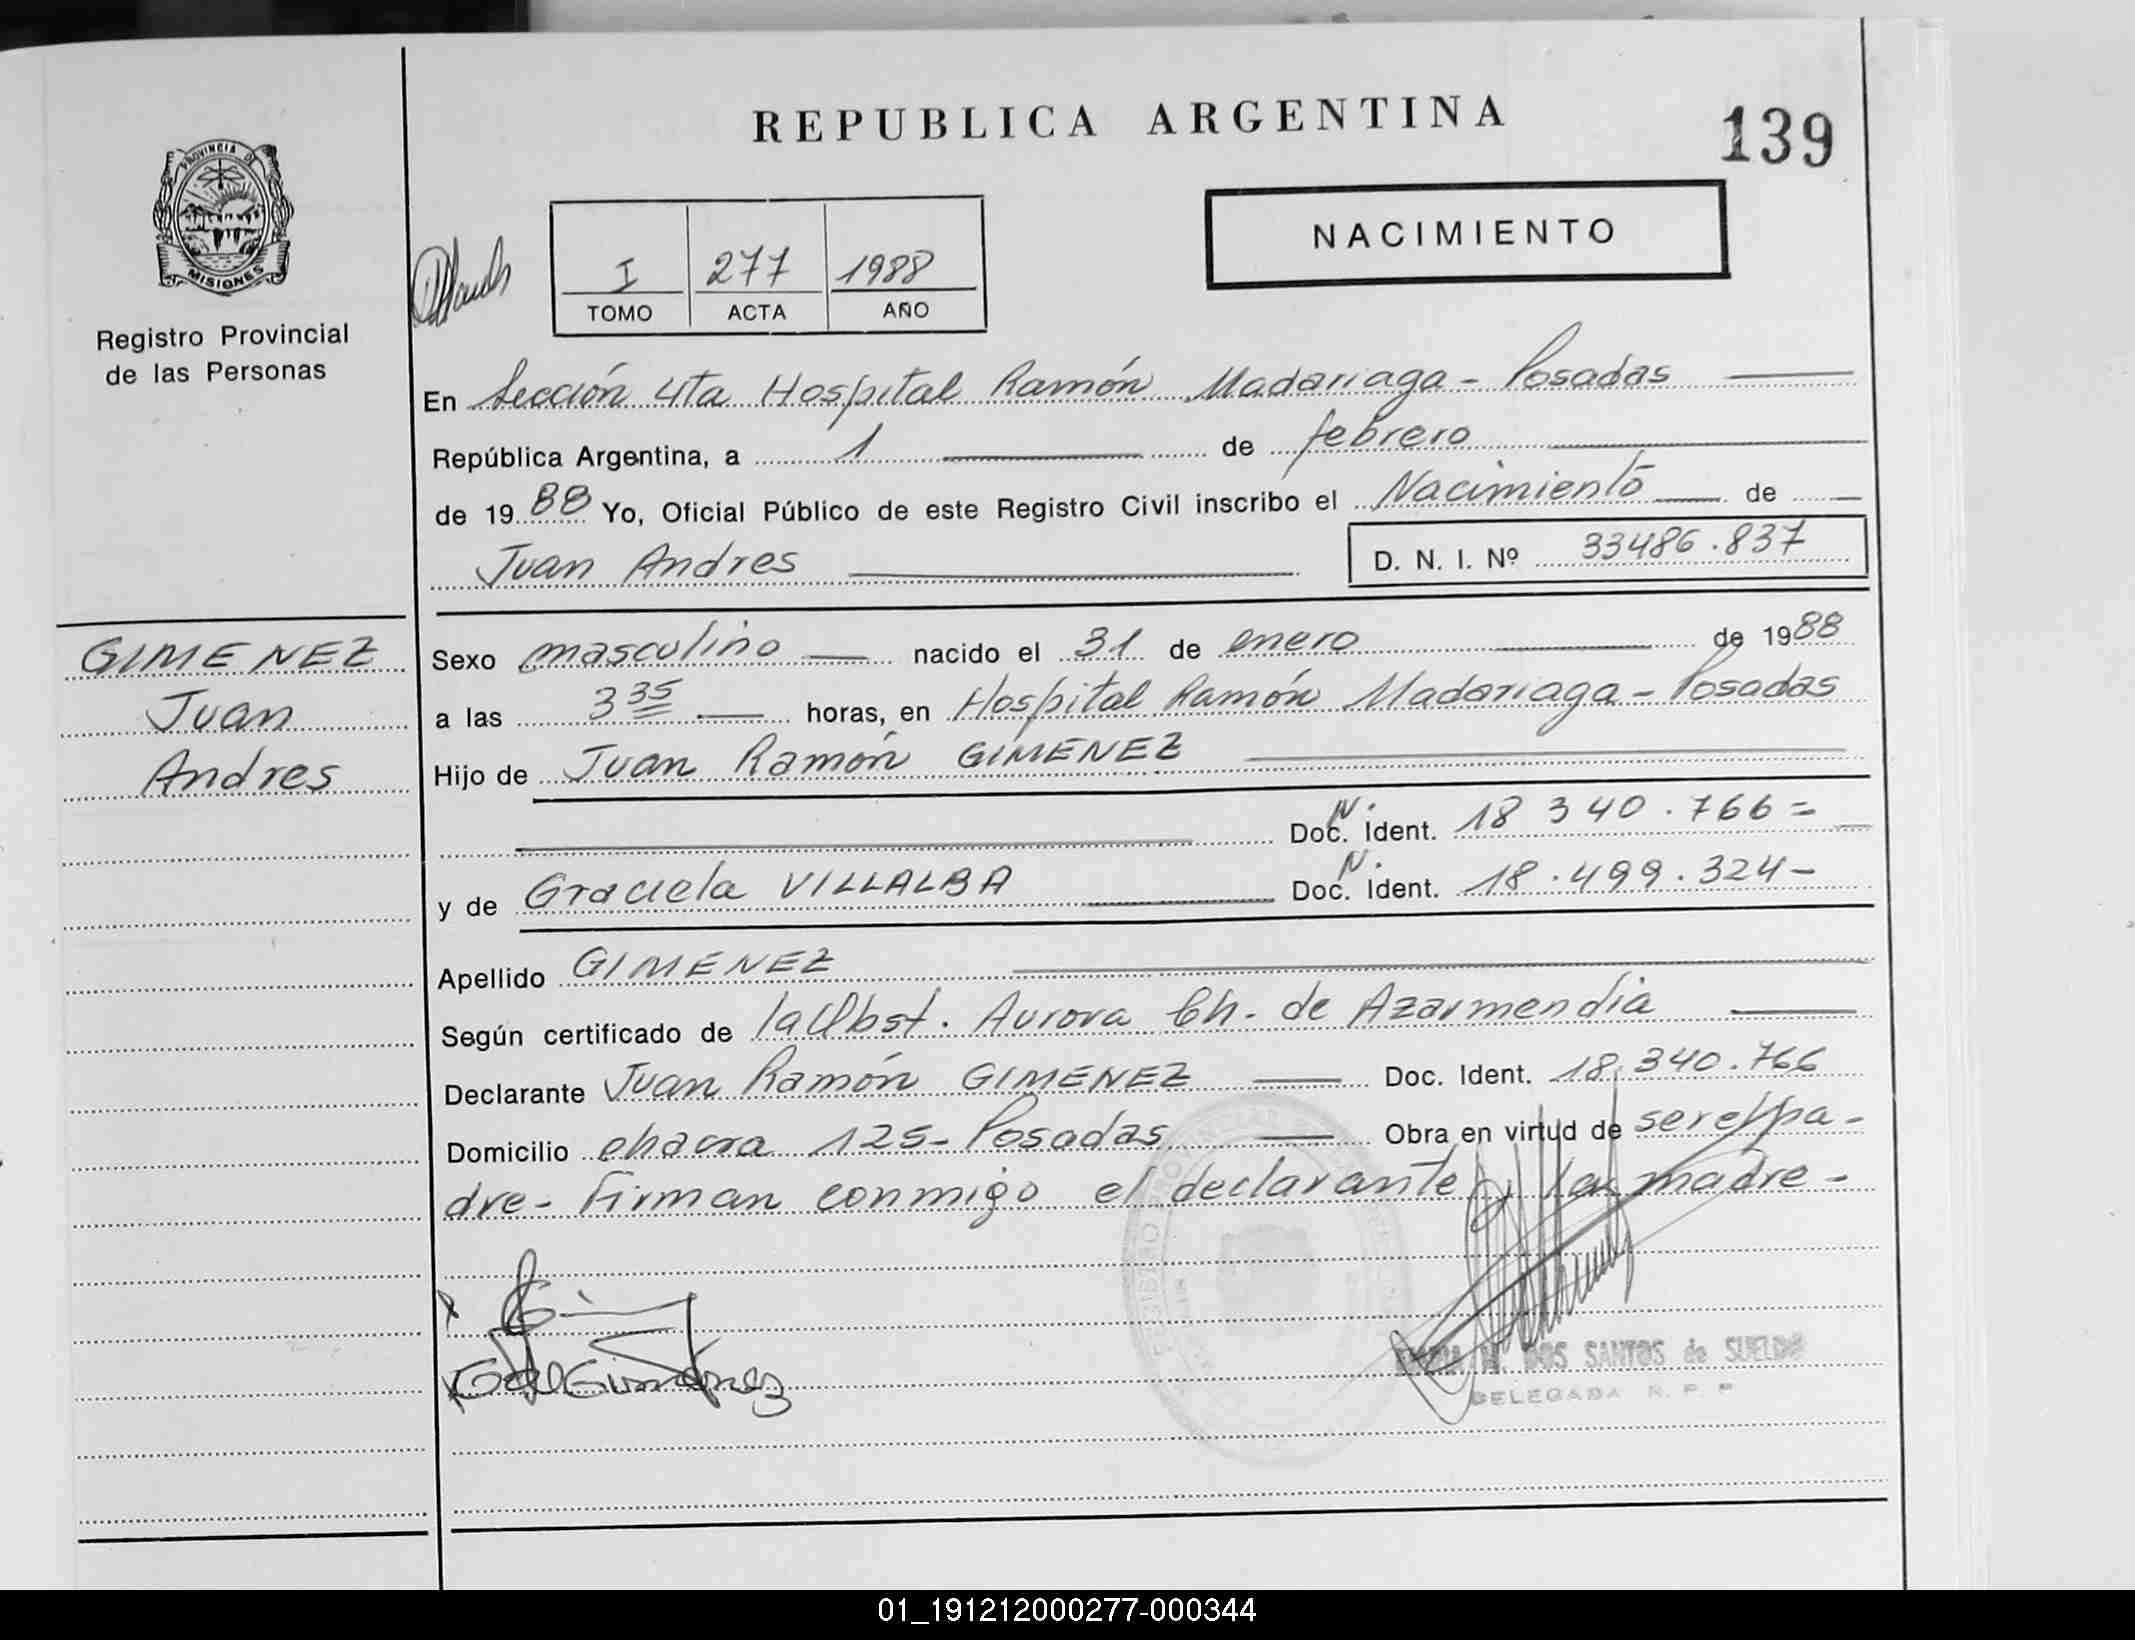 REPUBLICA ARGENTINA
139
PROVINCIA DE
MISIONES
Registro Provincial
de las Personas
I 277 1988
TOMO ACTA AÑO
NACIMIENTO
En Sección 4ta Hospital Ramón Madariaga - Posadas
República Argentina, a 1 de febrero
de 1988 Yo, Oficial Público de este Registro Civil inscribo el Nacimiento de
Juan Andres D. N. I. Nº 33486.837
GIMENEZ
Juan
Andres
Sexo masculino nacido el 31 de enero de 1988
a las 3 35 horas, en Hospital Ramón Madariaga - Posadas
Hijo de Juan Ramón GIMENEZ
N.
Doc. Ident. 18 340.766=
N.
y de Graciela VILLALBA Doc. Ident. 18.499.324-
Apellido GIMENEZ
Según certificado de la Obst. Aurora Ch. de Azarmendia
Declarante Juan Ramón GIMENEZ Doc. Ident. 18.340.766
Domicilio chacra 125- Posadas Obra en virtud de ser el pa-
dre- Firman conmigo el declarante y la madre-
DOS SANTOS de SUELDO
DELEGADA R. P. P.
01_191212000277-000344